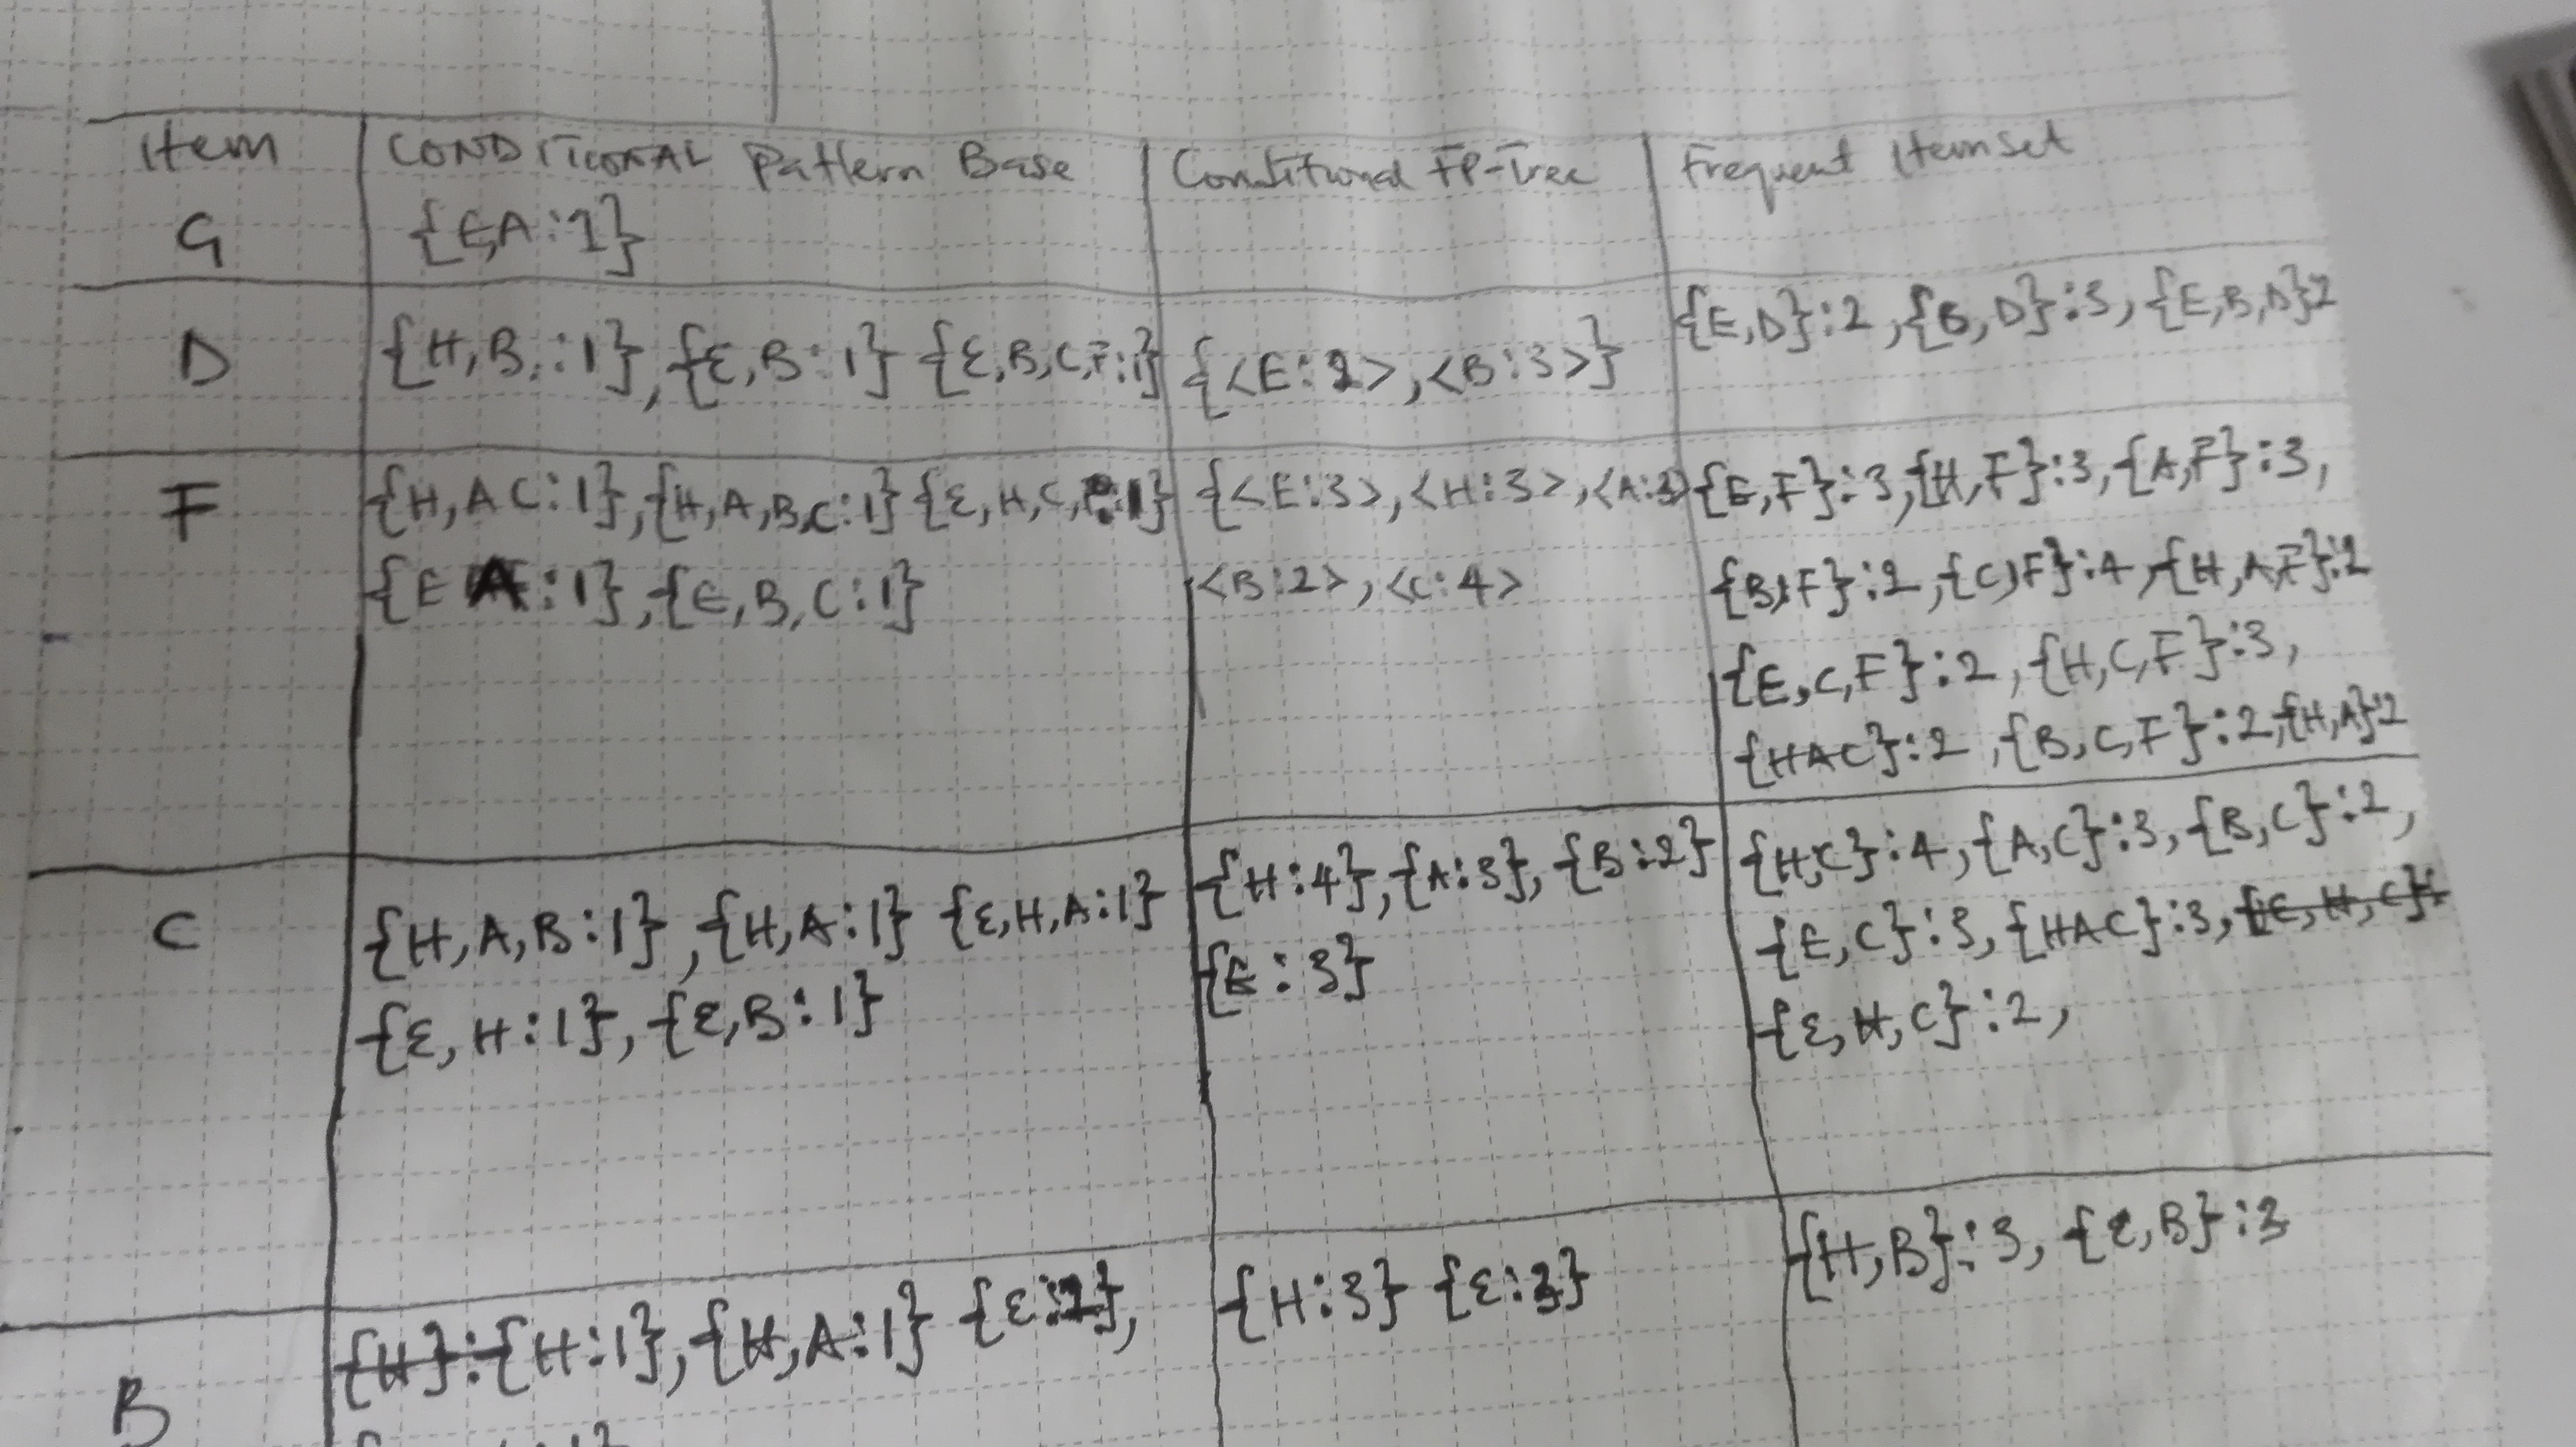 Item CONDITIONAL Pattern Base Conditional FP-Tree Frequent Itemset
G {E,A:1}
D {H,B,:1},{E,B:1} {E,B,C,F:1} {<E:2>,<B:3>} {E,D}:2,{B,D}:3,{E,B,D}2
F {H,A C:1},{H,A,B,C:1} {E,H,C, :1} {<E:3>,<H:3>,<A:3> {E,F}:3,{H,F}:3,{A,F}:3,
{E A:1},{E,B,C:1} <B:2>,<C:4> {B,F}:2,{C,F}:4,{H,A,F}:2
{E,C,F}:2,{H,C,F}:3,
{HAC}:2,{B,C,F}:2,{H,A}:2
C {H,A,B:1},{H,A:1} {E,H,A:1} {H:4},{A:3},{B:2} {H,C}:4,{A,C}:3,{B,C}:2,
{E,H:1},{E,B:1} {E:3} {E,C}:3,{HAC}:3,{E,H,C}:
{E,H,C}:2,
B {H}:{H:1},{H,A:1} {E:2}, {H:3} {E:3} {H,B}:3,{E,B}:3